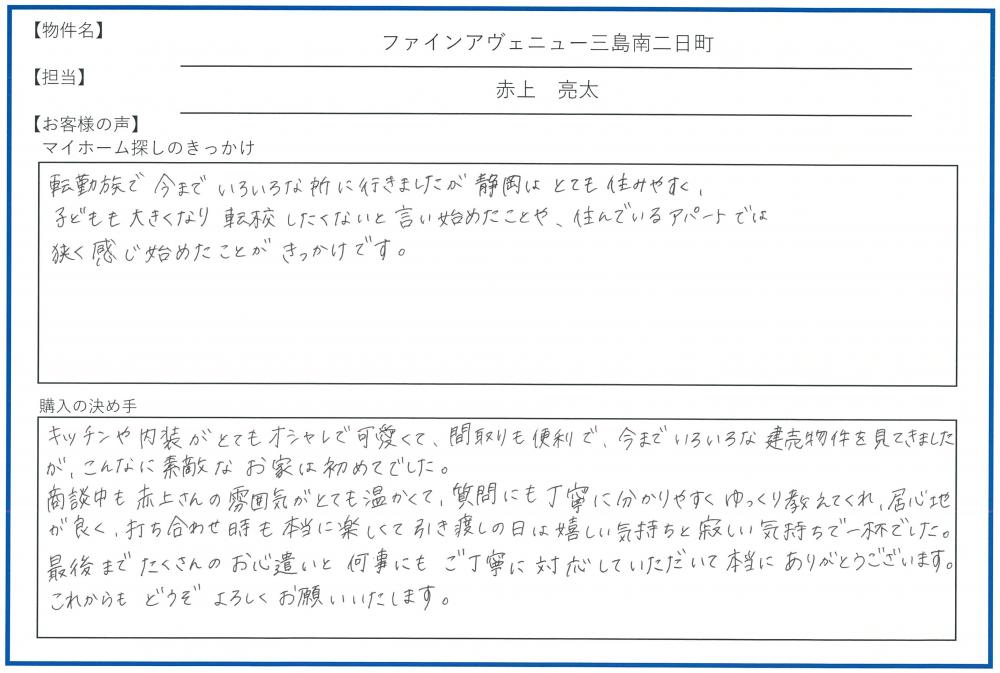 【物件名】
ファインアヴェニュー三島南二日町
【担当】
赤上　亮太
【お客様の声】
マイホーム探しのきっかけ
転勤族で 今まで いろいろな所に行きましたが 静岡は とても 住みやすく、
子どもも 大きくなり 転校 したくないと 言い始めたことや、住んでいるアパートでは
狭く感じ始めたことが きっかけです。
購入の決め手
キッチンや内装がとてもオシャレで可愛くて、間取りも便利で、今までいろいろな建売物件を見てきました
が、こんなに素敵な お家は初めてでした。
商談中も赤上さんの雰囲気がとても温かくて、質問にも丁寧に分かりやすく ゆっくり教えてくれ、居心地
が良く、打ち合わせ時も本当に楽しくて引き渡しの日は嬉しい気持ちと寂しい気持ちで一杯でした。
最後まで たくさんの お心遣いと 何事にも ご丁寧に対応していただいて本当に ありがとうございます。
これからも どうぞ よろしく お願いいたします。